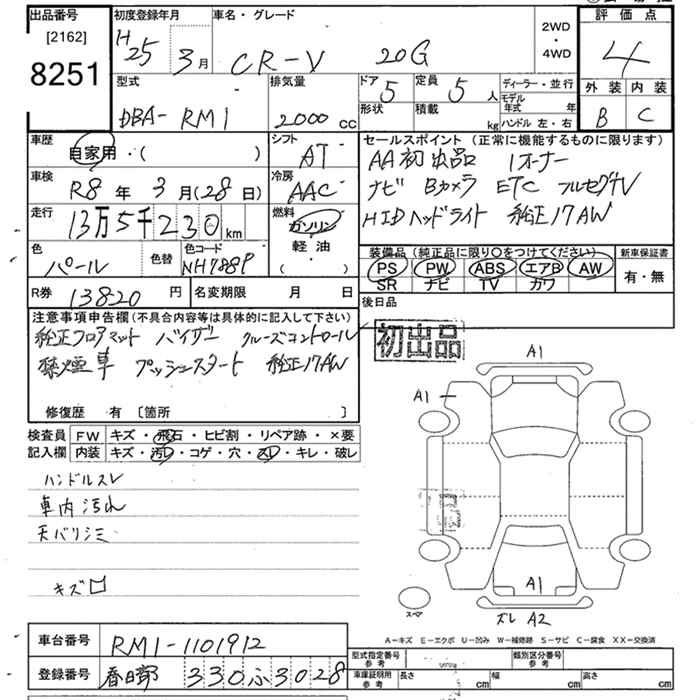 出品番号
[2162]
8251
初度登録年月
H25 3月
車名・グレード
CR-V 20G
2WD
・
4WD
評価点
4
外装 内装
B C
型式
DBA- RM1
排気量
2000 cc
ドア 5
定員 5 人
形状
積載 kg
ディーラー・並行
モデル年式 年
ハンドル 左・右
車歴
自家用・( )
シフト
AT
車検
R8年 3月(28日)
冷房
AAC
走行
13万5千230km
燃料
ガソリン
軽油
( )
色
パール
色替
色コード
NH788P
R券 13820円
名変期限 月 日
セールスポイント (正常に機能するものに限ります)
AA初出品 1オーナー
ナビ Bカメラ ETC フルセグTV
HIDヘッドライト 純正17AW
装備品(純正品に限り○をつけてください)
PS PW ABS エアB AW
SR ナビ TV カワ
新車保証書
有・無
後日品
注意事項申告欄(不具合内容等は具体的に記入して下さい)
純正フロアマット バイザー クルーズコントロール
禁煙車 プッシュスタート 純正17AW
修復歴 有 [箇所 ]
初出品
検査員記入欄
FW キズ・飛石・ヒビ割・リペア跡・×要
内装 キズ・汚レ・コゲ・穴・スレ・キレ・破レ
ハンドルスレ
車内汚れ
天バリシミ
キズロ
A1
A1
A1
ズレ A2
スペア
A-キズ E-エクボ U-凹み W-補修跡 S-サビ C-腐食 XX-交換済
車台番号 RM1-1101912
登録番号 春日部 330ふ3028
型式指定番号
参考
類別区分番号
参考
車庫証明用
参考
長さ cm 幅 cm 高さ cm